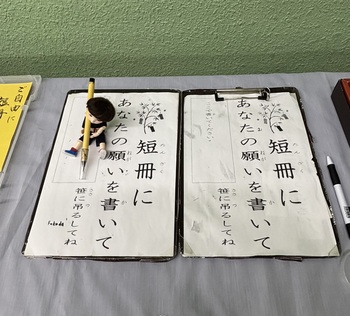 ご自由に
短冊に
あなたの願いを書いて
笹に吊るしてね
短冊に
あなたの願いを書いて
笹に吊るしてね